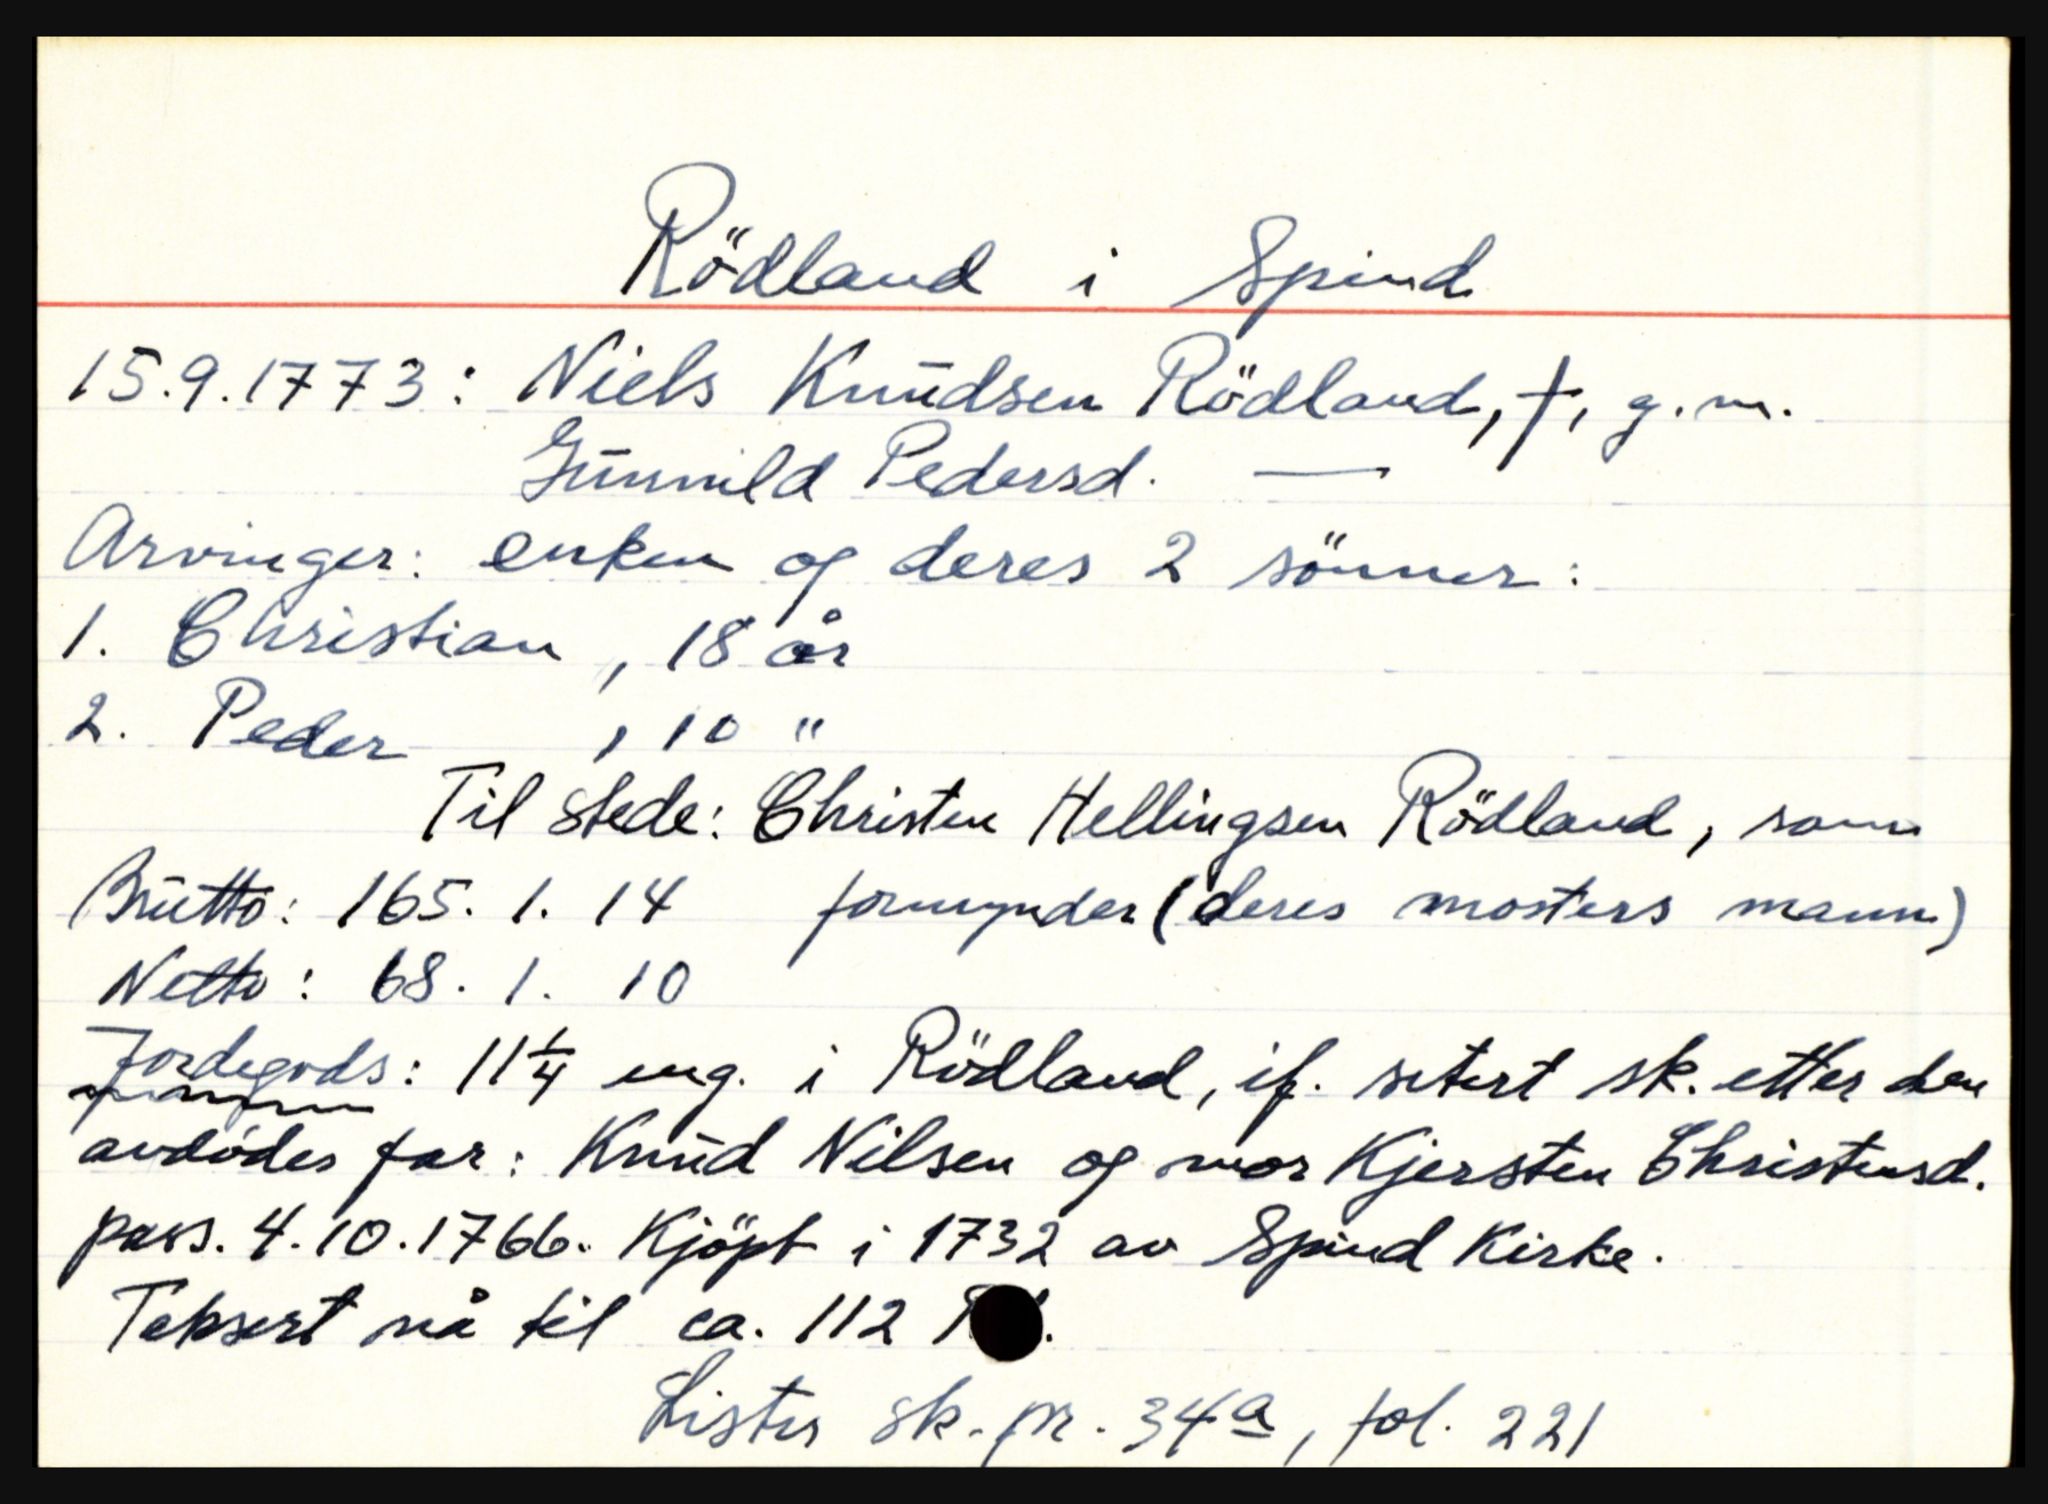 Rödland i Spind
15.9.1773: Niels Knudsen Rödland, †, g.m.
Gunnild Pedersd. —
Arvinger: enken og deres 2 sönner:
1. Christian, 18 år
2. Peder, 10 "
Til stede: Christen Hellingsen Rödland, som
Brutto: 165. 1. 14 formynder (deres mosters mann)
Netto: 68. 1. 10
Jordegods: 11 1/4 eng. i Rödland, if. sitert sk. etter den
avdödes far: Knud Nilsen og mor Kjersten Christensd.
pass. 4.10.1766. Kjöpt i 1732 av Spind Kirke.
Taksert nå til ca. 112
Lister sk. pr. 34a, fol. 221